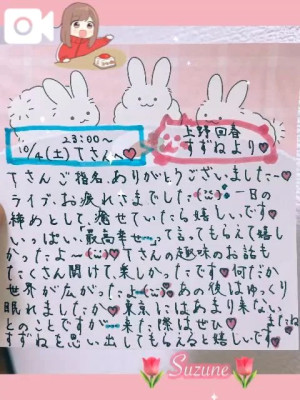 23:00〜
10/4(土)Tさんへ♡
上野回春
すずねより♡
Tさんご指名ありがとうございましたー
ライブお疲れさまでした 一日の
締めとして、癒せていたら嬉しいです
いっぱい「最高幸せー」て言ってもらえて嬉し
かったよー Tさんの趣味のお話も
たくさん聞けて楽しかったです 何だか
世界が広がったよ あの後はゆっくり
眠れましたか 東京にはあまり来ない
とのことですが 来た際はぜひ またね
すずねを思い出してもらえると嬉しいです
Suzune